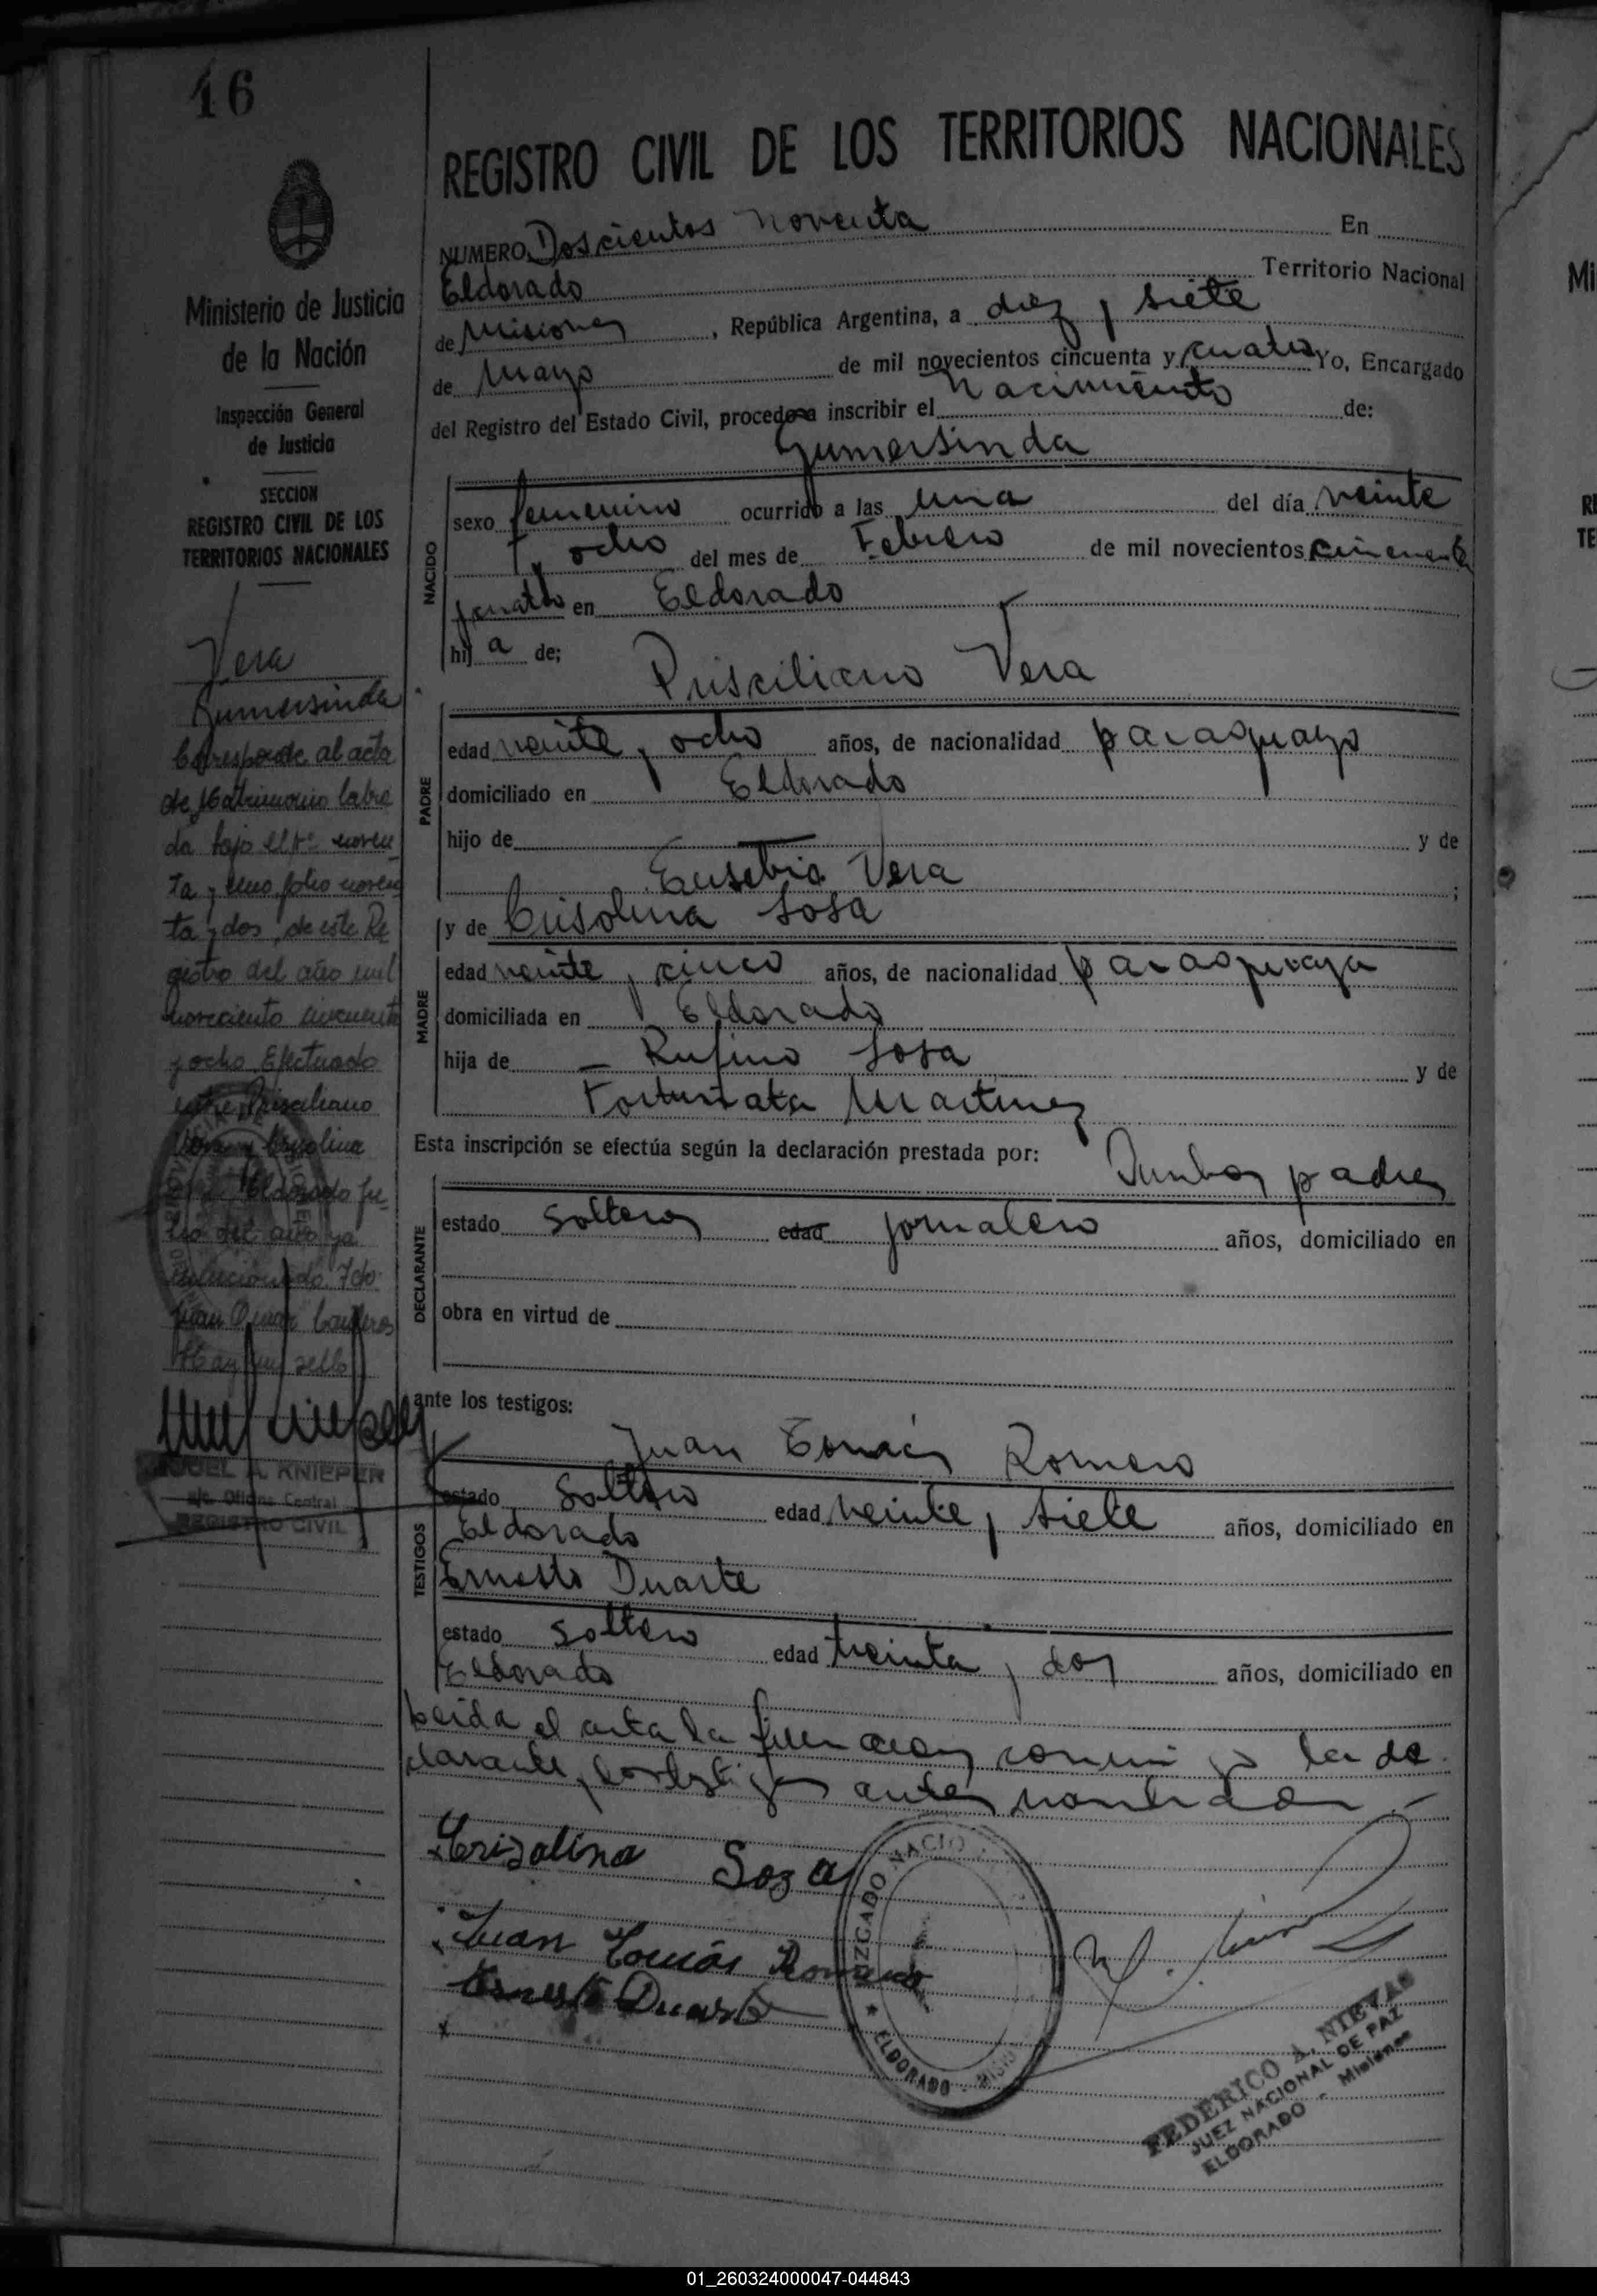 16
REGISTRO CIVIL DE LOS TERRITORIOS NACIONALES
NUMERO Doscientos noventa En
Eldorado Territorio Nacional
de Misiones, República Argentina, a diez y siete
de Mayo de mil novecientos cincuenta y cuatro Yo, Encargado
del Registro del Estado Civil, procedo a inscribir el Nacimiento de:
Gumersinda
NACIDO
sexo femenino ocurrido a las una del día veinte
y ocho del mes de Febrero de mil novecientos cincuenta
y cuatro en Eldorado
hij a de;
Prisciliano Vera
PADRE
edad veinte y ocho años, de nacionalidad paraguayo
domiciliado en Eldorado
hijo de y de
Eusebia Vera ;
y de Crisolina Sosa
MADRE
edad veinte y cinco años, de nacionalidad paraguaya
domiciliada en Eldorado
hija de — Rufino Sosa y de
Fortunata Martinez
Esta inscripción se efectúa según la declaración prestada por:
padres
DECLARANTE
estado solteros edad jornalero años, domiciliado en
obra en virtud de
ante los testigos:
Juan Tomás Romero
TESTIGOS
estado soltero edad veinte y siete años, domiciliado en
Eldorado
Ernesto Duarte
estado soltero edad treinta y dos años, domiciliado en
Eldorado
Leida el acta la firman conmigo la de
clarante y los testigos antes nombrados.—
Crizolina Soza
Juan Tomás Romero
Ernesto Duarte
JUZGADO NACIO
ELDORADO - MISIO
FEDERICO A. NIEVAS
JUEZ NACIONAL DE PAZ
ELDORADO - Misiones
Ministerio de Justicia
de la Nación
Inspección General
de Justicia
SECCION
REGISTRO CIVIL DE LOS
TERRITORIOS NACIONALES
Vera
Gumersinda
Corresponde al acta
de Matrimonio labra
da bajo el Nº noven_
ta y uno folio noven
ta y dos, de este Re
gistro del año mil
novecientos cincuenta
y ocho Efectuado
entre Prisciliano
Vera y Crisolina
Eldorado
del año ya
mencionado. Fdo:
Juan
Hay un sello
MIGUEL A. KNIEPER
a/c. Oficina Central
REGISTRO CIVIL
Mi
RE
TE
01_260324000047-044843